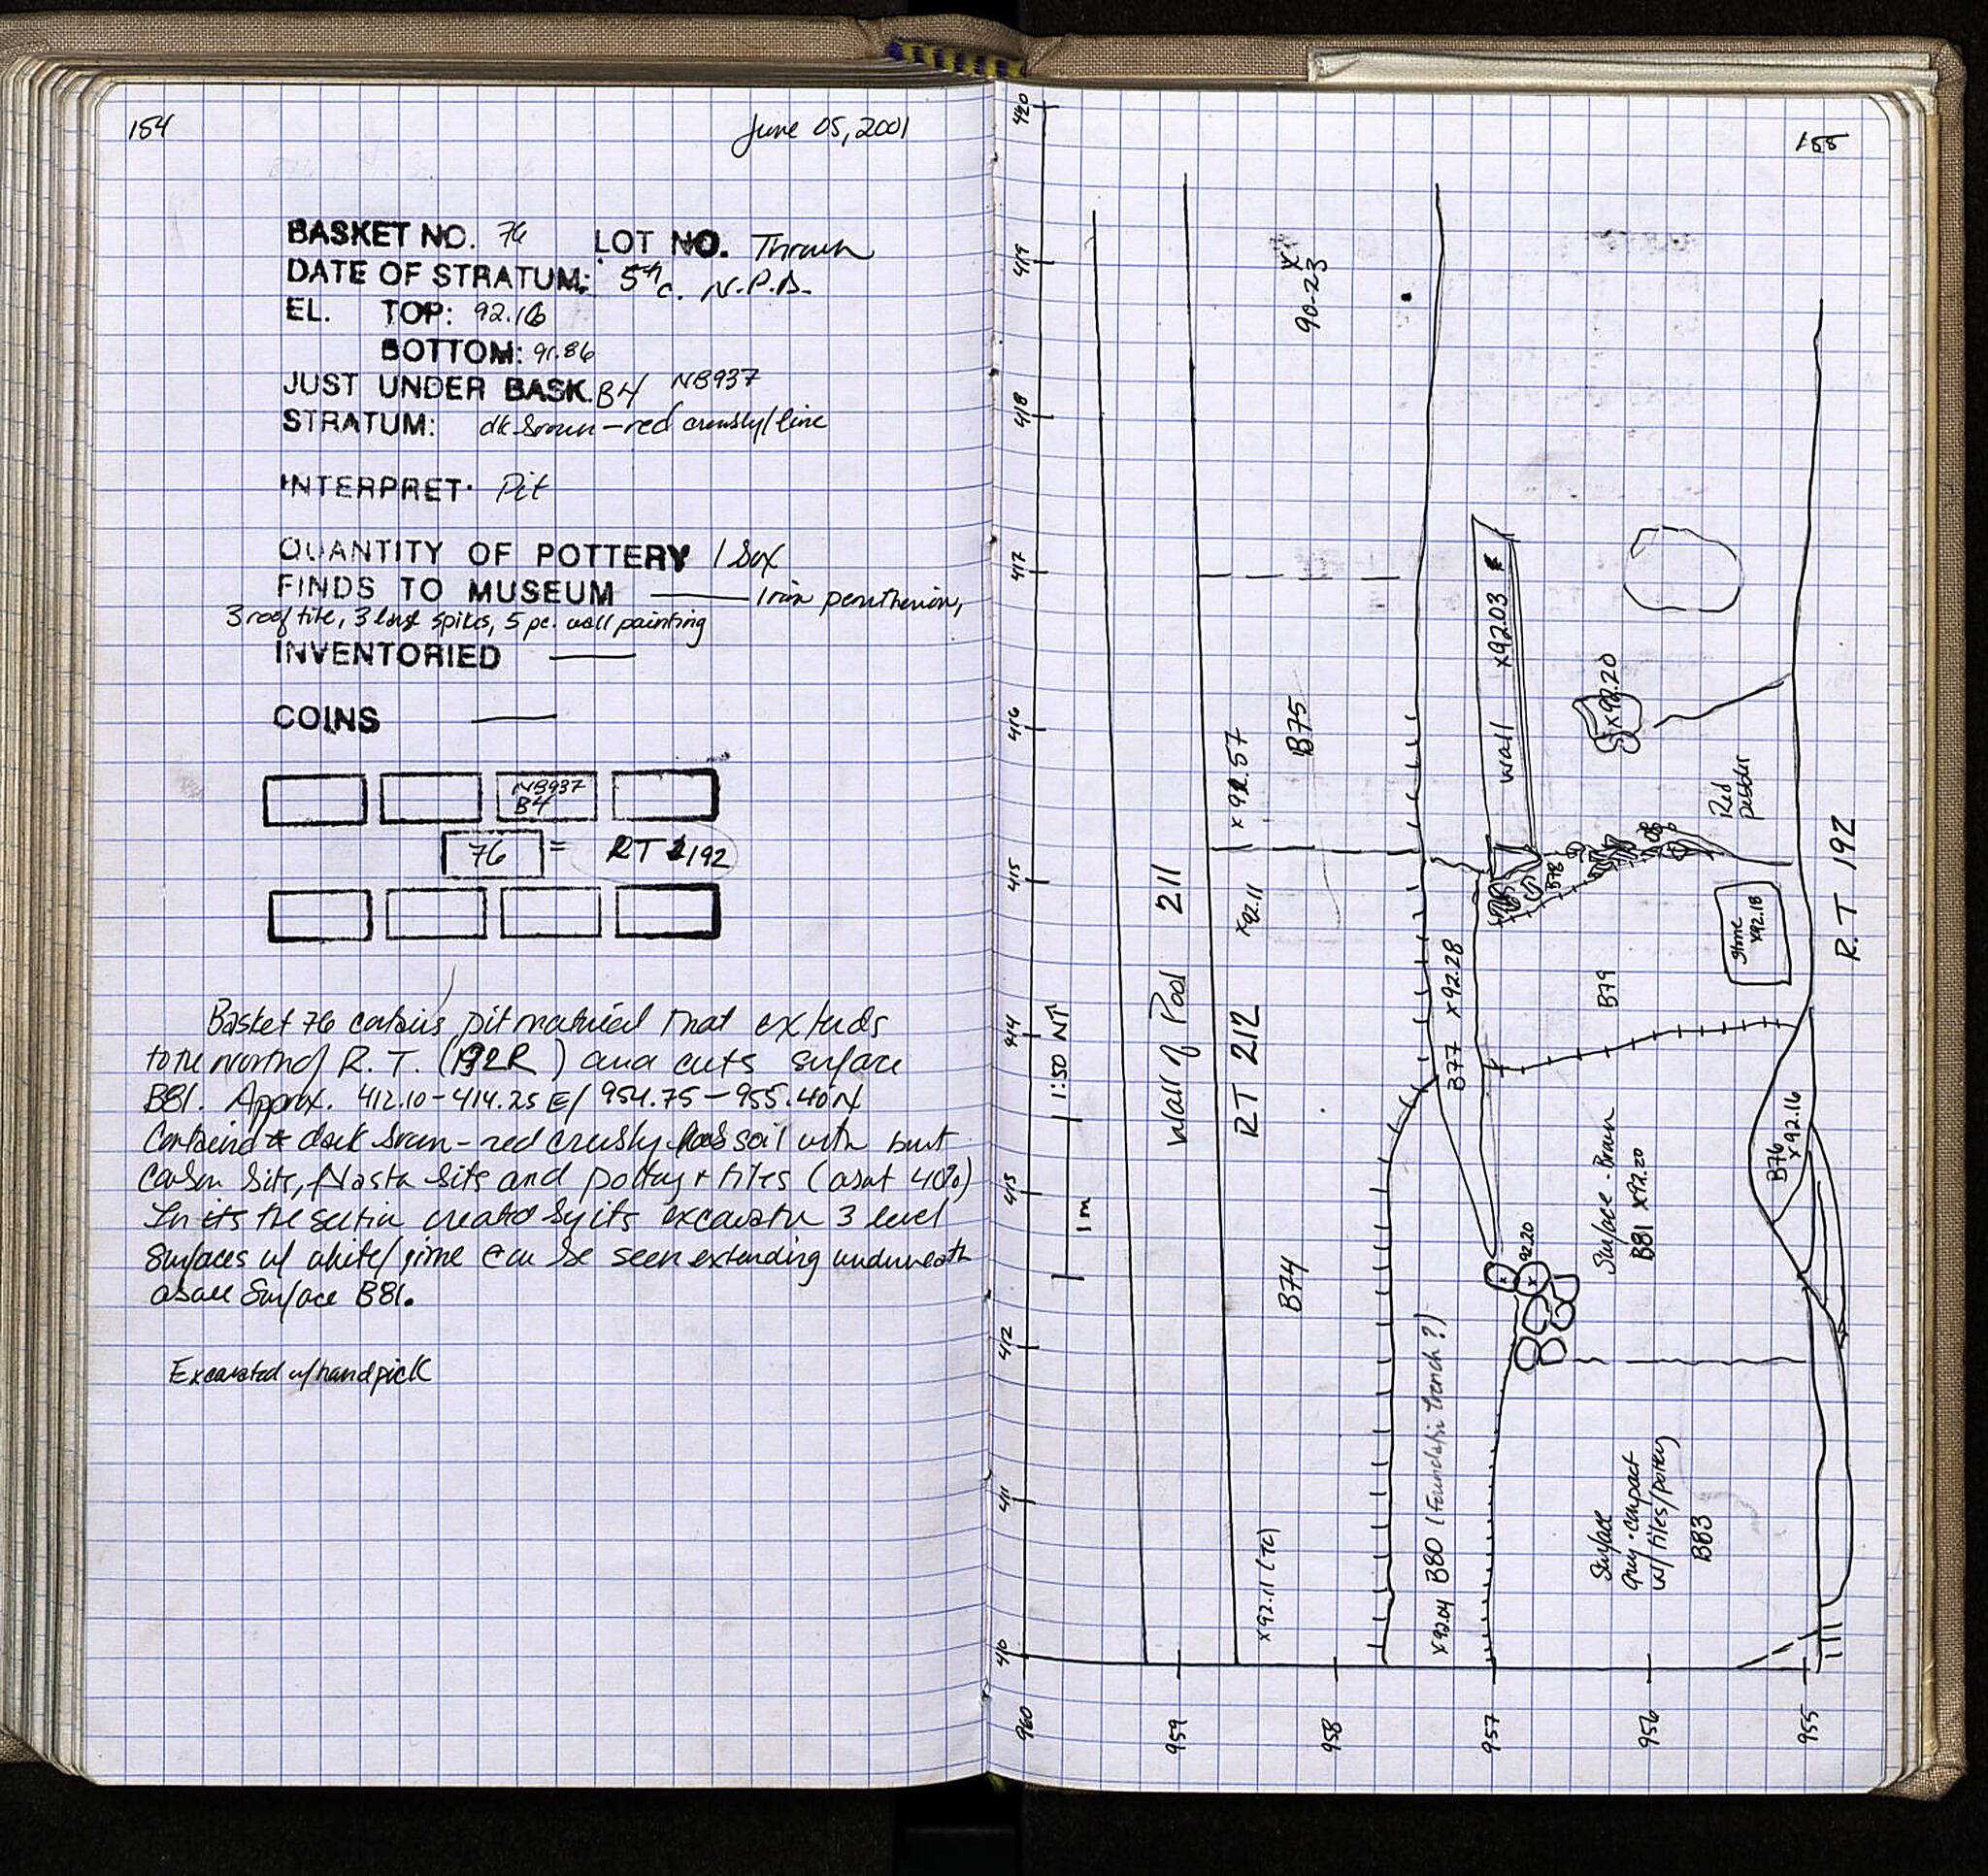 154
June 05, 2001
BASKET NO. 76 LOT NO. Thrown
DATE OF STRATUM: 5th c. N.P.D.
EL. TOP: 92.16
BOTTOM: 91.86
JUST UNDER BASK. B4 NB937
STRATUM: dk brown-red crumbly/fine
INTERPRET. Pit
QUANTITY OF POTTERY 1 box
FINDS TO MUSEUM — Iron
3 roof tile, 3 large spikes, 5 pc. wall painting
INVENTORIED —
COINS —
NB937
B4
76 = RT 192
Basket 76 contains pit material that extends
to the north of R. T. (192R) and cuts surface
B81. Approx. 412.10-414.25 E/ 954.75-955.40 N
Contained dark brown-red crumbly soil with burnt
carbon bits, plaster bits and pottery + tiles (about 40%)
In the section created by its excavation 3 level
surfaces w/ white/ lime can be seen extending underneath
Surface B81.
Excavated w/ handpick
155
420
419
418
417
416
415
414
413
412
411
410
960
959
958
957
956
955
1:50 N↑
1 m
Wall of Pool 211
RT 212
x92.11 (TC)
B74
x92.11
x92.57
B75
90-23
x92.04 B80 (Foundation trench?)
B77 x92.28
wall x92.03
92.20
B78
x92.20
B79
Surface - Brown
B81 x92.20
Surface
gray-compact
w/ tiles/pottery
B83
Red
Stone
x92.18
B76
x92.16
R.T 192